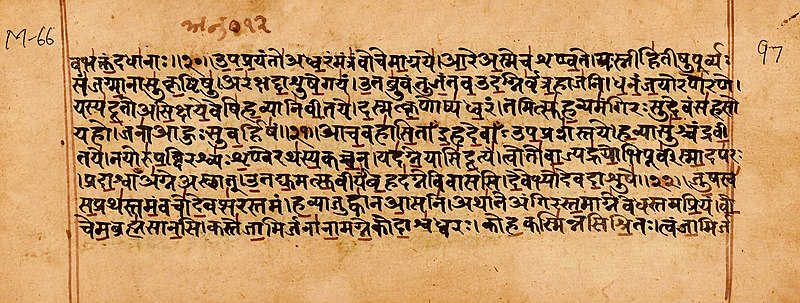 M-66
97
वभक्तं दधानाः॥२०॥उपप्रयंतो अध्वरं मंत्रं वोचेमाग्नये।आरे अस्मे च शृण्वते।यः स्नीहितीषु पूर्व्यः
संजग्मानासु कृष्टिषु।अरक्षद्दाशुषे गयं।उत ब्रुवंतु जंतव उदग्निर्वृत्रहाजनि।धनंजयो रणेरणे।
यस्य दूतो असि क्षये वेषि हव्यानि वीतये।दस्मत्कृणोष्यध्वरं।तमित्सुहव्यमंगिरः सुदेवं सहसो
यहो।जना आहुः सुबर्हिषं॥२१॥आ च वहासि ताँ इह देवाँ उप प्रशस्तये।हव्या सुश्चंद्र वी
तये।न योरुपब्दिरश्व्यः शृण्वे रथस्य कच्चन।यदग्ने यासि दूत्यं।त्वोतो वाज्यह्रयोभि पूर्वस्मादपरः
।प्र दाश्वाँ अग्ने अस्थात्।उत द्युमत्सुवीर्यं बृहदग्ने विवाससि।देवेभ्यो देव दाशुषे॥२२॥जुषस्व
सप्रथस्तमं वचो देवप्सरस्तमं।हव्या जुह्वान आसनि।अथा ते अंगिरस्तमाग्ने वेधस्तम प्रियं।वो
चेम ब्रह्म सानसि।कस्ते जामिर्जनानामग्ने को दाश्वध्वरः।को ह कस्मिन्नसि श्रितः।त्वं जामिर्ज